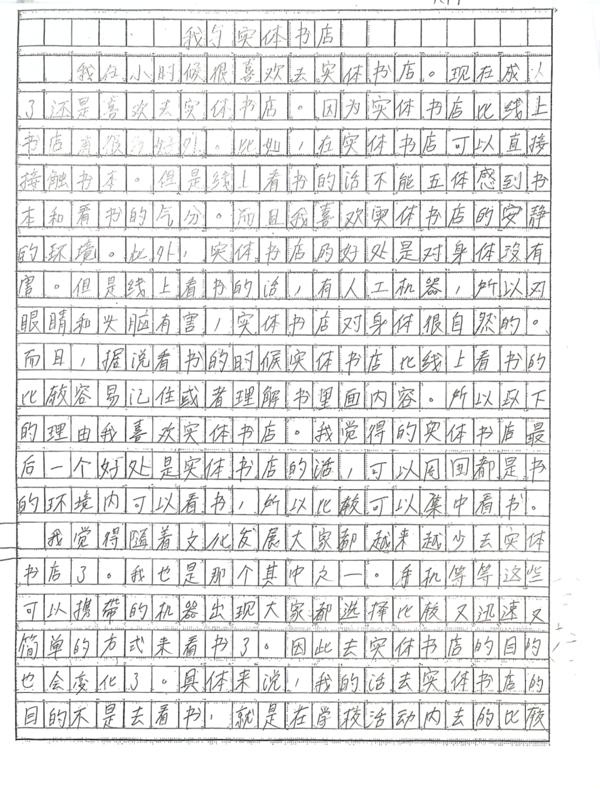 我与实体书店
我在小时候很喜欢去实体书店。现在成人
了还是喜欢去实体书店。因为实体书店比线上
书店有很多好处。比如，在实体书店可以直接
接触书本。但是线上看书的话不能五体感到书
本和看书的气分。而且我喜欢实体书店的安静
的环境。此外，实体书店的好处是对身体没有
害。但是线上看书的话，有人工机器，所以对
眼睛和头脑有害，实体书店对身体很自然的。
而且，据说看书的时候实体书店比线上看书的
比较容易记住或者理解书里面内容。所以以下
的理由我喜欢实体书店。我觉得的实体书店最
后一个好处是实体书店的话，可以周围都是书
的环境内可以看书，所以比较可以集中看书。
我觉得随着文化发展大家都越来越少去实体
书店了。我也是那个其中之一。手机等等这些
可以携带的机器出现大家都选择比较又迅速又
简单的方式来看书了。因此去实体书店的目的
也会变化了。具体来说，我的话去实体书店的
目的不是去看书，就是在学校活动内去的比较